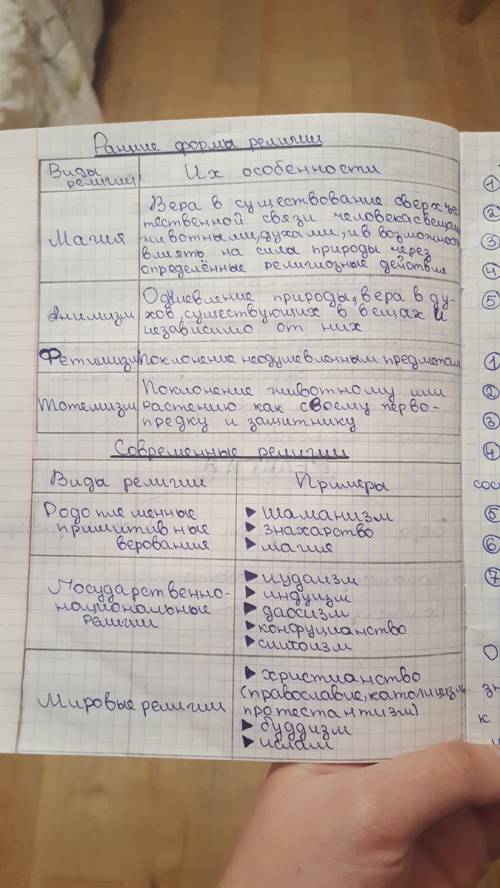 Ранние формы религии
Виды религии
Их особенности
Магия
Вера в существование сверхъес-
тественной связи человека с вещами,
животными, духами, и в возможность
влиять на силы природы через
определённые религиозные действия
Анимизм
Одушевление природы, вера в ду-
хов, существующих в вещах и
независимо от них
Фетишизм
Поклонение неодушевлённым предметам
Тотемизм
Поклонение животному или
растению как своему перво-
предку и защитнику
Современные религии
Виды религии
Примеры
Родоплеменные
примитивные
верования
▶ шаманизм
▶ знахарство
▶ магия
Государственно-
национальные
религии
▶ иудаизм
▶ индуизм
▶ даосизм
▶ конфуцианство
▶ синтоизм
Мировые религии
▶ христианство
(православие, католицизм,
протестантизм)
▶ буддизм
▶ ислам
①
②
③
④
⑤
①
②
③
④
сос
⑤
⑥
⑦
О
зн
к